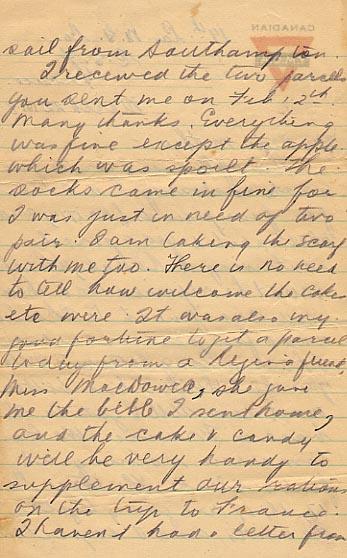 sail from Southampton.
I received the two parcels
you sent me on Feb. 12th.
Many thanks. Everything
was fine except the apple
which was spoilt. The
socks came in fine for
I was just in need of two
pair. I am taking the scarf
with me too. There is no need
to tell how welcome the cakes
etc were. It was also my
good fortune to get a parcel
today from a Regina friend,
Miss MacDowell, she gave
me the bible I sent home,
and the cake & candy
will be very handy to
supplement our rations
on the trip to France.
I haven't had a letter from
CANADIAN